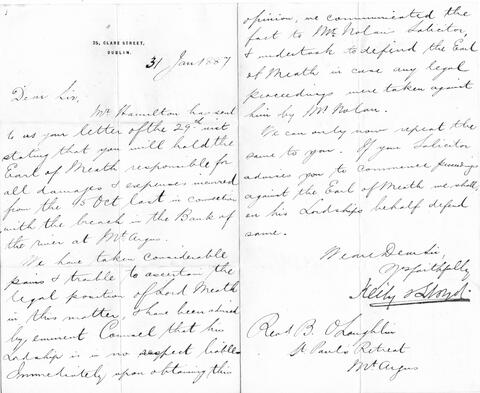 35, CLARE STREET,
DUBLIN.
31 Jan 1887
Dear Sir,
Mr Hamilton has sent
to us your letter of the 29th inst
stating that you will hold the
Earl of Meath responsible for
all damages & expenses incurred
from the 15 Oct last in connection
with the breach in the Bank of
the river at Mt Argus.
We have taken considerable
pains & trouble to ascertain the
legal position of Lord Meath
in this matter, & have been advised
by eminent Counsel that his
Lordship is in no respect liable
Immediately upon obtaining this
opinion, we communicated the
fact to Mr Nolan Solicitor,
& undertook to defend the Earl
of Meath in case any legal
proceedings were taken against
him by Mr Nolan.
We can only now repeat the
same to you. If your Solicitor
advises you to commence proceedings
against the Earl of Meath we shall
on his Lordships behalf defend
same.
We are Dear Sir,
Yrs faithfully
& Lloyd
Revd B. O'Loughlin
St Pauls Retreat
Mt Argus